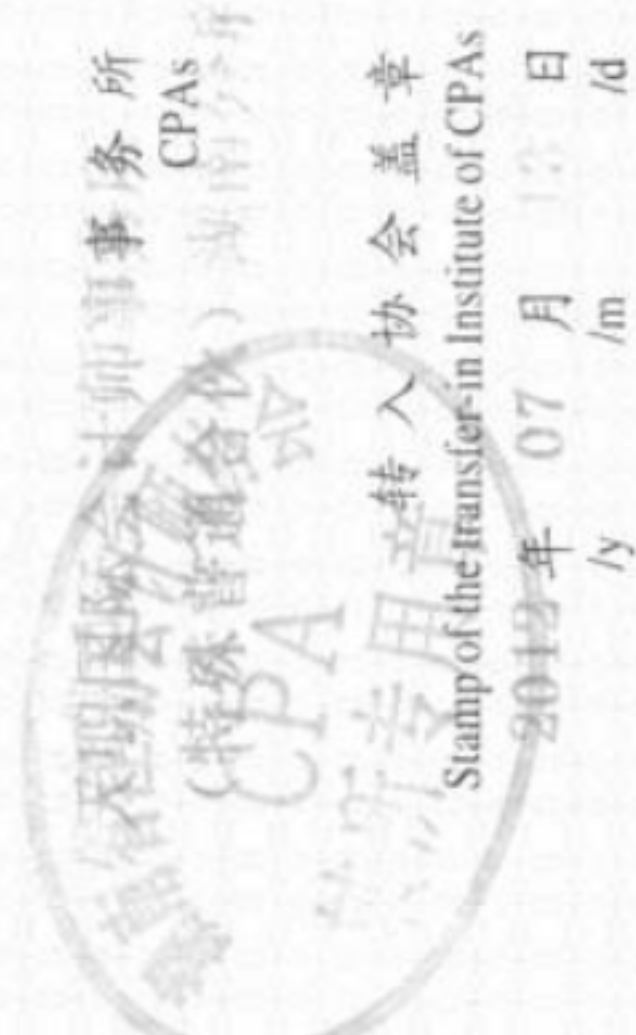 天职国际会计师事务所
CPAs
(特殊普通合伙)湖南分所
转入协会盖章
Stamp of the transfer-in Institute of CPAs
2012 年 07 月 13 日
/y /m /d
CPA
专用章